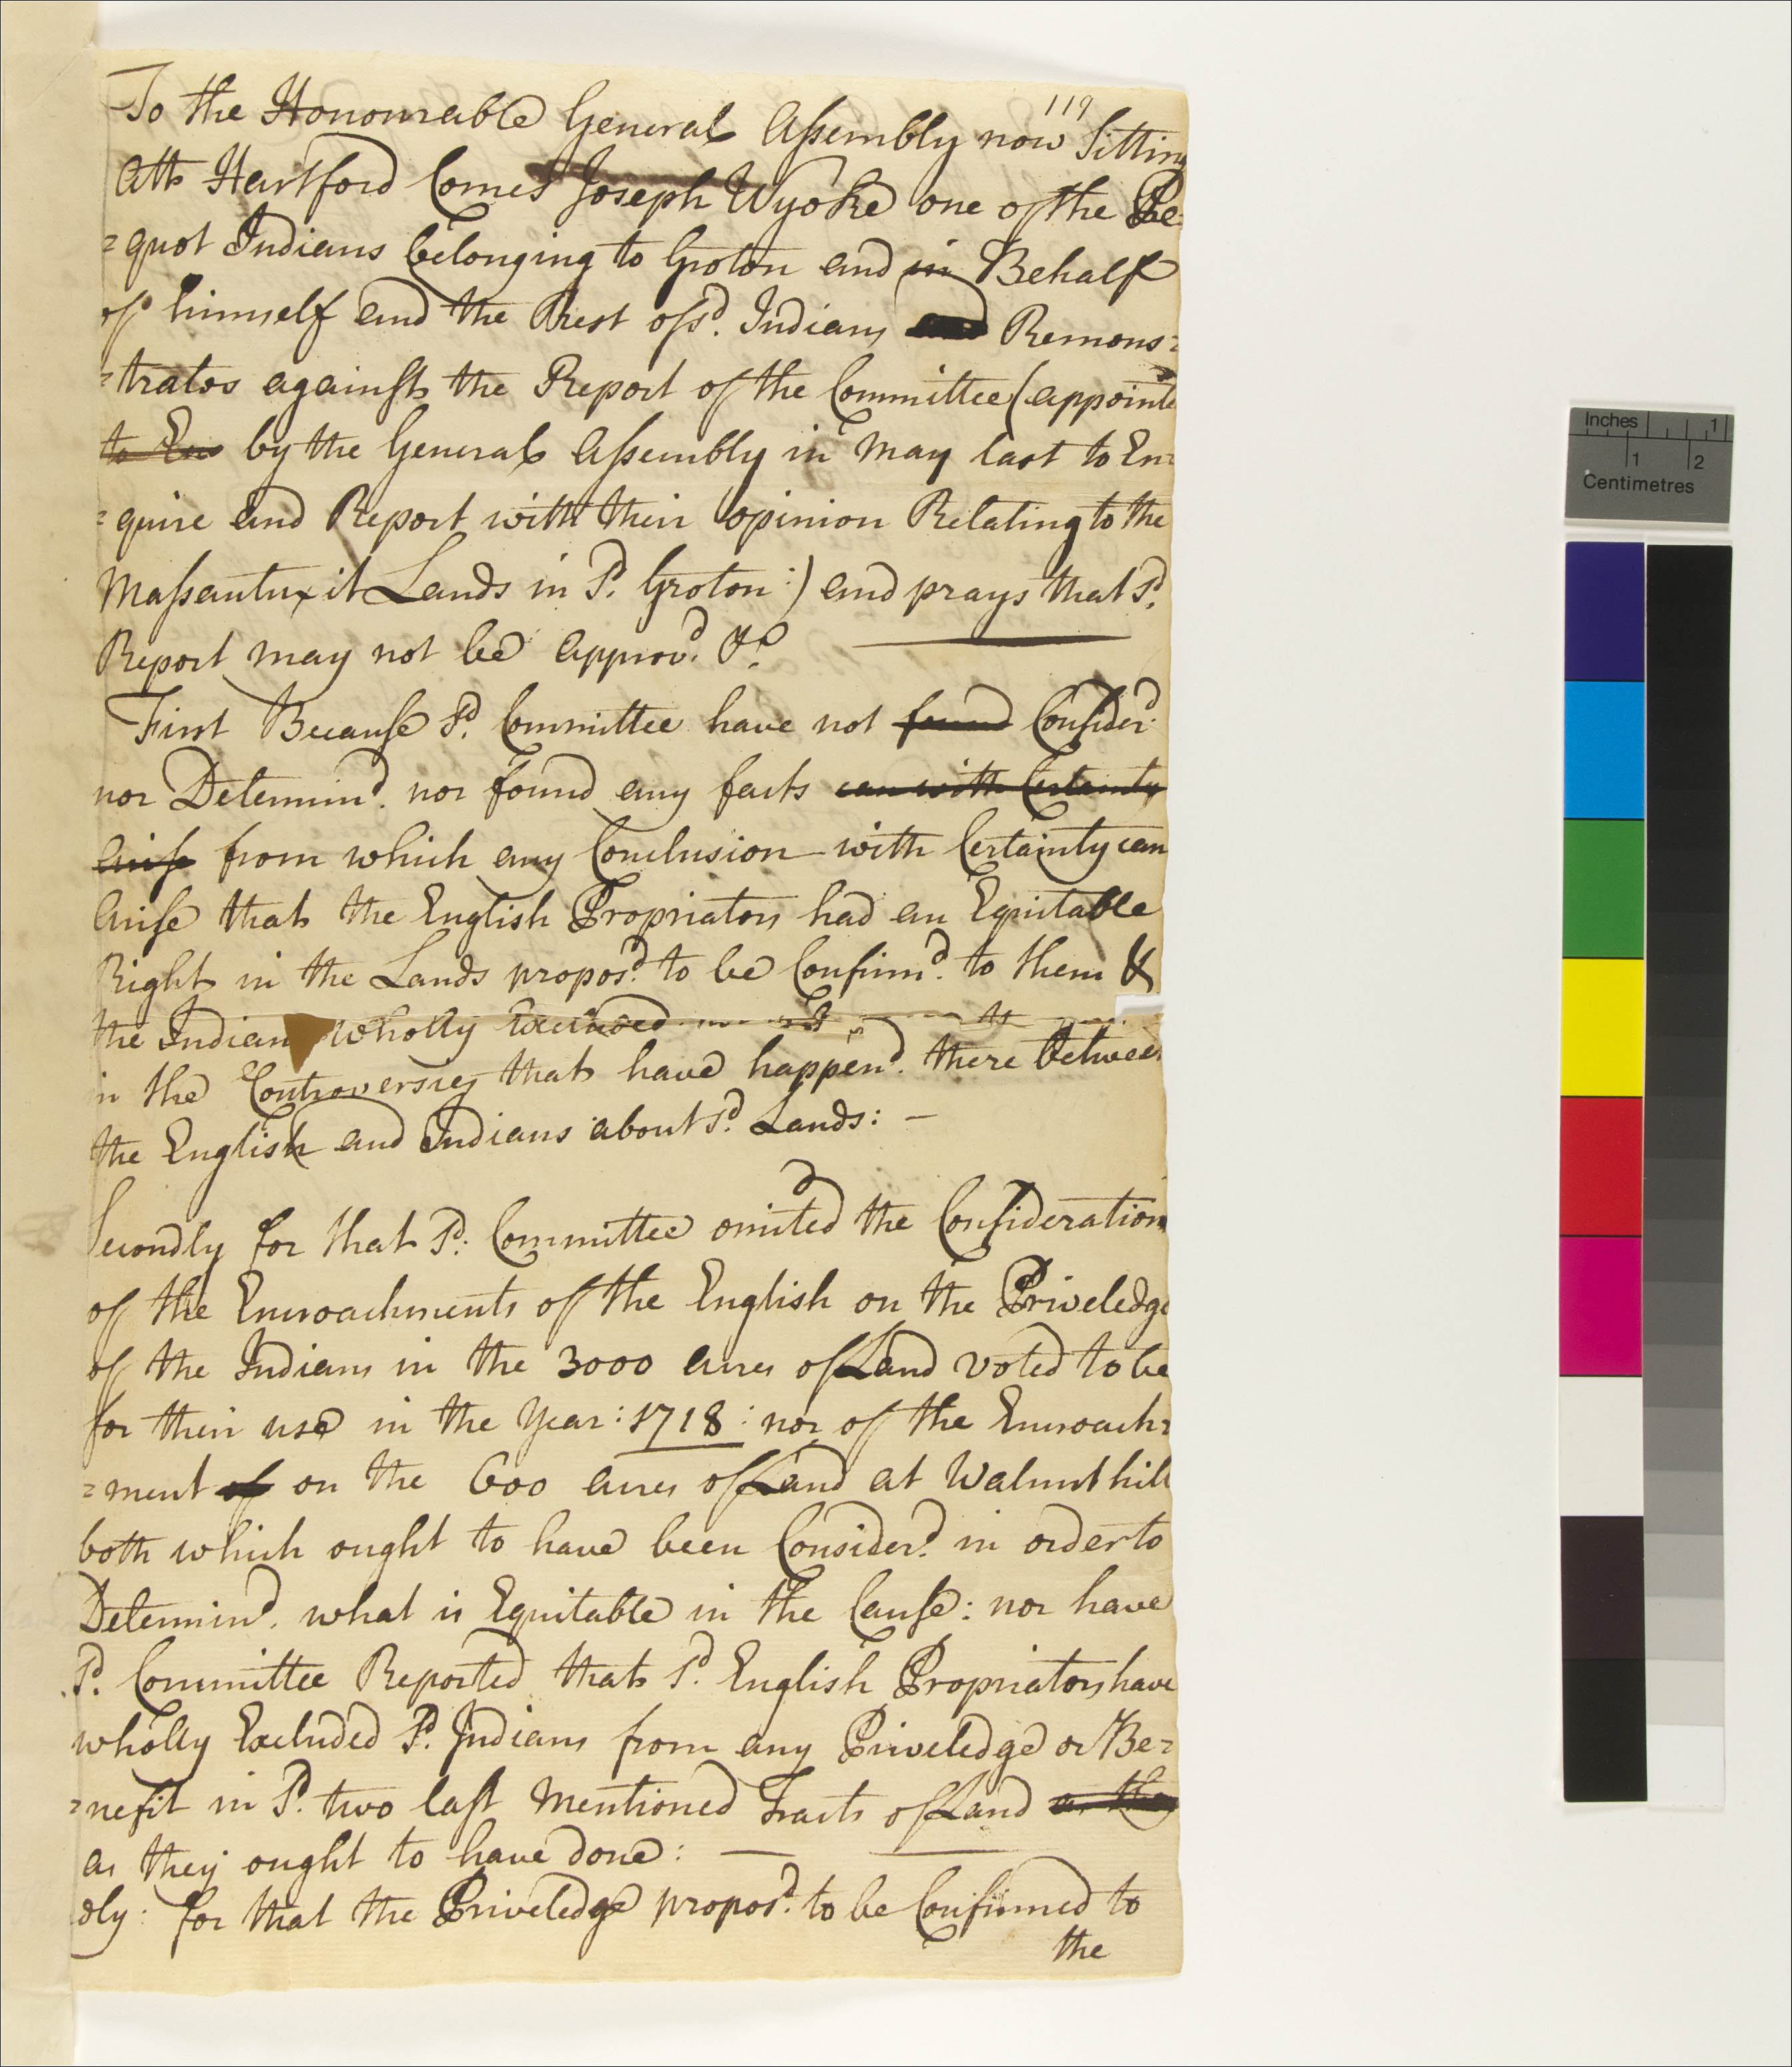 119
To the Honourable General Assembly now Sitting
Att Hartford Comes Joseph Wyoke one of the Pe=
=quot Indians belonging to Groton and in Behalf
of himself and the Rest of sd. Indians and Remons=
=trates against the Report of the Committee (appointe
to En by the General Assembly in May last to En=
=quire and Report with their opinion Relating to the
Massantuxit Lands in sd. Groton:) and prays that sd.
Report may not be approvd. &c
First Because sd. Committee have not found Considerd
nor Determind. nor found any facts can with Certainty
Arise from which any Conclusion with Certainty can
Arise that the English Propriators had an Equitable
Right in the Lands proposd. to be Confirmd. to them &
the Indian wholly Excluded
in the Controversies that have happend. there between
the English and Indians about sd. Lands: —
Secondly for that sd. Committee omited the Consideration
of the Encroachments of the English on the Priveledge
of the Indians in the 3000 acres of Land voted to be
for their use in the Year: 1718: nor of the Encroach=
=ment of on the 600 acres of Land at Walnut hill
both which ought to have been Considerd. in order to
Determind. what is Equitable in the Cause: nor have
sd. Committee Reported that sd. English Propriators have
wholly Excluded sd. Indians from any Priveledge or Be=
=nefit in sd. two last mentioned Tracts of Land as they
as they ought to have done: —
dly: for that the Priveledge proposd. to be Confirmed to
the
Inches 1
1 2
Centimetres